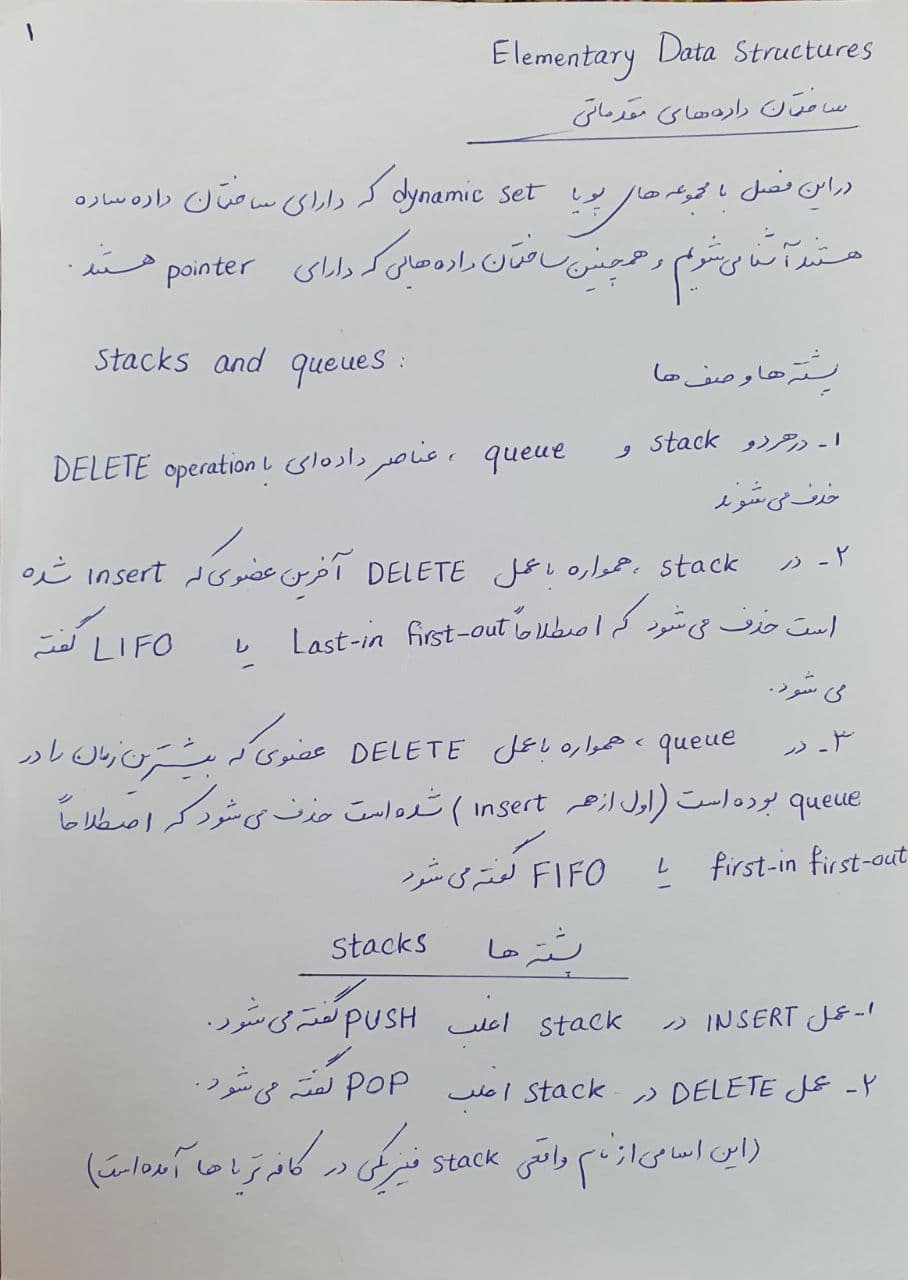 ۱
Elementary Data Structures
ساختمان داده‌های مقدماتی
در این فصل با مجموعه های پویا dynamic set که دارای ساختمان داده ساده
هستند آشنا می‌شویم و همچنین ساختمان داده‌هایی که دارای pointer هستند.
پشته ها و صف ها Stacks and queues :
۱- در هر دو stack و queue ، عناصر داده‌ای با DELETE operation
حذف می‌شوند
۲- در stack ، همواره با عمل DELETE آخرین عضوی که insert شده
است حذف می‌شود که اصطلاحاً Last-in first-out یا LIFO گفته
می شود.
۳- در queue ، همواره با عمل DELETE عضوی که بیشترین زمان را در
queue بوده است (اول از همه insert) شده است حذف می‌شود که اصطلاحاً
first-in first-out یا FIFO گفته می‌شود
پشته ها Stacks
۱- عمل INSERT در stack اغلب PUSH گفته می‌شود.
۲- عمل DELETE در stack اغلب POP گفته می‌شود.
(این اسامی از نام واقعی stack فیزیکی در کافه تریا ها آمده است)